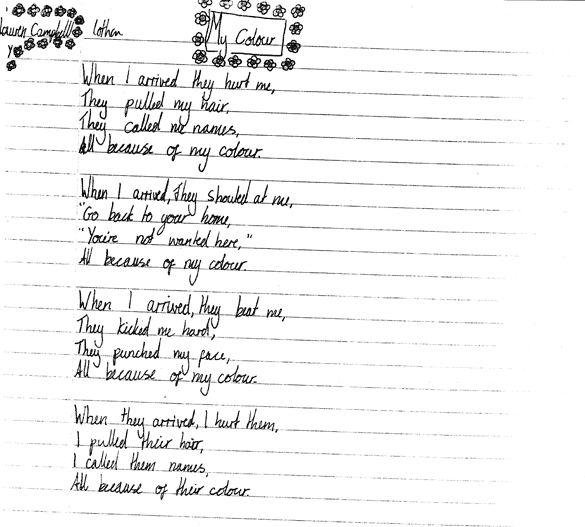 Lauren Campbell
Lothan
My Colour
When I arrived they hurt me,
They pulled my hair,
They called me names,
All because of my colour.
When I arrived, They shouted at me,
"Go back to your home,
"You're not wanted here,"
All because of my colour.
When I arrived, they beat me,
They kicked me hard,
They punched my face,
All because of my colour.
When they arrived, I hurt them,
I pulled their hair,
I called them names,
All because of their colour.